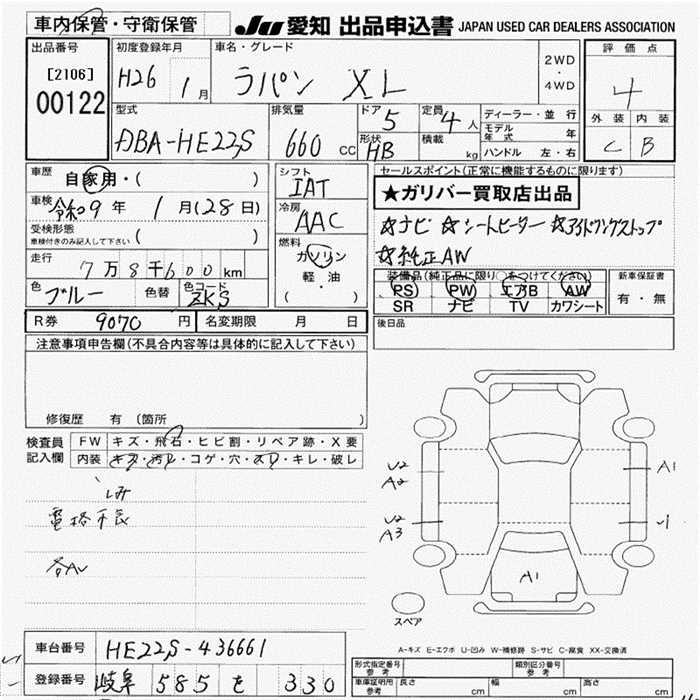 車内保管・守衛保管
JU 愛知 出品申込書 JAPAN USED CAR DEALERS ASSOCIATION
出品番号
[2106]
00122
初度登録年月
H26 1月
車名・グレード
ラパン XL
2WD
・
4WD
評価点
4
外装 内装
C B
型式
DBA-HE22S
排気量
660 CC
ドア 5
形状 HB
定員 4 人
積載 kg
ディーラー・並行
モデル年式 年
ハンドル 左・右
車歴
自家用・( )
車検
令和9年 1月(28日)
受検形態
車検付きのみ記入して下さい ( )
走行
7万8千600km
色
ブルー
色替
色コード
ZKS
シフト
IAT
冷房
AAC
燃料
ガソリン
軽・油
( )
セールスポイント(正常に機能するものに限ります)
★ガリバー買取店出品
☆ナビ ☆シートヒーター ☆アイドリングストップ
☆純正AW
装備品(純正品に限り○をつけてください)
PS PW エアB AW
SR ナビ TV カワシート
新車保証書
有・無
R券 9070円
名変期限 月 日
後日品
注意事項申告欄(不具合内容等は具体的に記入して下さい)
修復歴 有 〔箇所 )
検査員
記入欄
FW キズ・飛石・ヒビ割・リペア跡・X要
内装 キズ・汚レ・コゲ・穴・スレ・キレ・破レ
しみ
電格不良
各AU
U2
A2
U2
A3
A1
A1
スペア
A-キズ E-エクボ U-凹み W-補修跡 S-サビ C-腐食 XX-交換済
車台番号 HE22S-436661
登録番号 岐阜 585 を 330
形式指定番号
参考
類別区分番号
参考
車庫証明用
参考
長さ cm
幅 cm
高さ cm